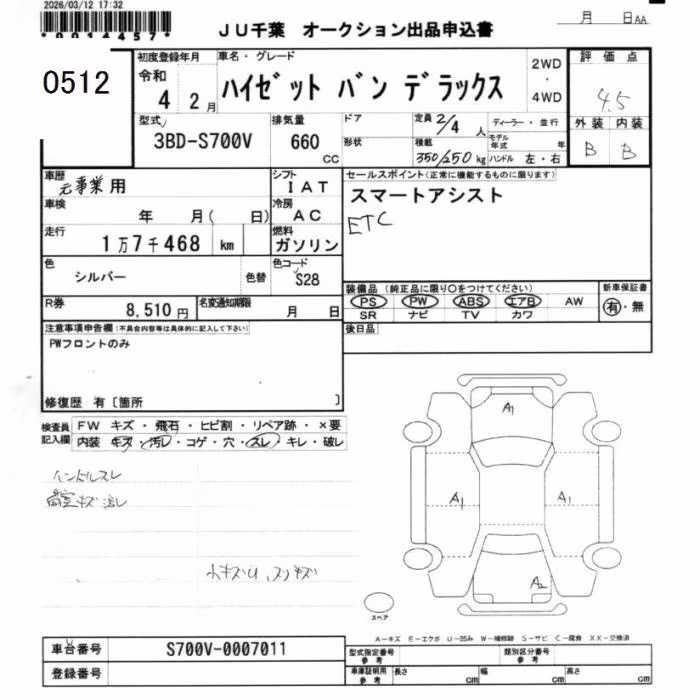 2026/03/12 17:32
*0014457*
JU千葉 オークション出品申込書
月 日AA
0512
初度登録年月
令和
4 2月
車名・グレード
ハイゼット バン デラックス
2WD
・
4WD
評価点
4.5
外装 内装
B B
型式
3BD-S700V
排気量
660
CC
ドア
形状
定員 2/4 人
積載 350/250 kg
ディーラー・並行
モデル年式 年
ハンドル 左・右
車歴
元事業用
シフト
IAT
セールスポイント(正常に機能するものに限ります)
スマートアシスト
ETC
車検
年 月( 日)
冷房
AC
走行
1万7千468 km
燃料
ガソリン
色
シルバー
色替
色コード
S28
装備品(純正品に限り○をつけてください)
PS PW ABS エアB AW
SR ナビ TV カワ
新車保証書
有・無
R券
8,510円
名変通知期限
月 日
後日品
注意事項申告欄(不具合内容等は具体的に記入して下さい)
PWフロントのみ
修復歴 有〔箇所 〕
検査員記入欄
FW キズ・飛石・ヒビ割・リペア跡・×要
内装 キズ・汚レ・コゲ・穴・スレ・キレ・破レ
ハンドルスレ
荷室キズ汚レ
小キズU、スリキズ
A1
A1
A1
A2
スペア
A−キズ E−エクボ U−凹み W−補修跡 S−サビ C−腐食 XX−交換済
車台番号
S700V-0007011
登録番号
型式指定番号
参考
類別区分番号
参考
車庫証明用
参考
長さ cm
幅 cm
高さ cm